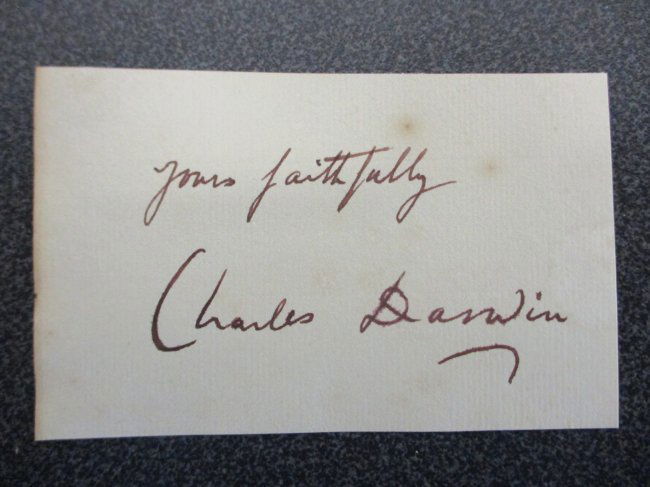 Yours faithfully
Charles Darwin